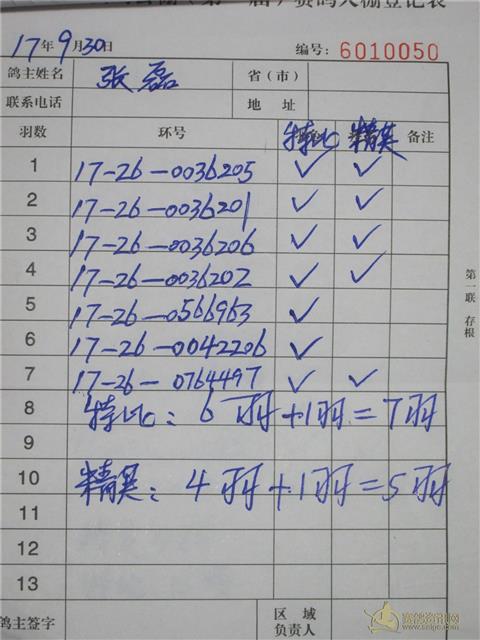 赛鸽入棚登记表
17年9月30日 编号：6010050
鸽主姓名 张磊 省（市）
联系电话 地址
羽数 环号 特比 精英 备注
1 17-26-0036205 ✓ ✓
2 17-26-0036201 ✓ ✓
3 17-26-0036206 ✓ ✓
4 17-26-0036202 ✓ ✓
5 17-26-0566963 ✓
6 17-26-0042206 ✓
7 17-26-0764497 ✓ ✓
8 特比：6羽+1羽=7羽
9
10 精英：4羽+1羽=5羽
11
12
13
鸽主签字 区域负责人
第一联 存根